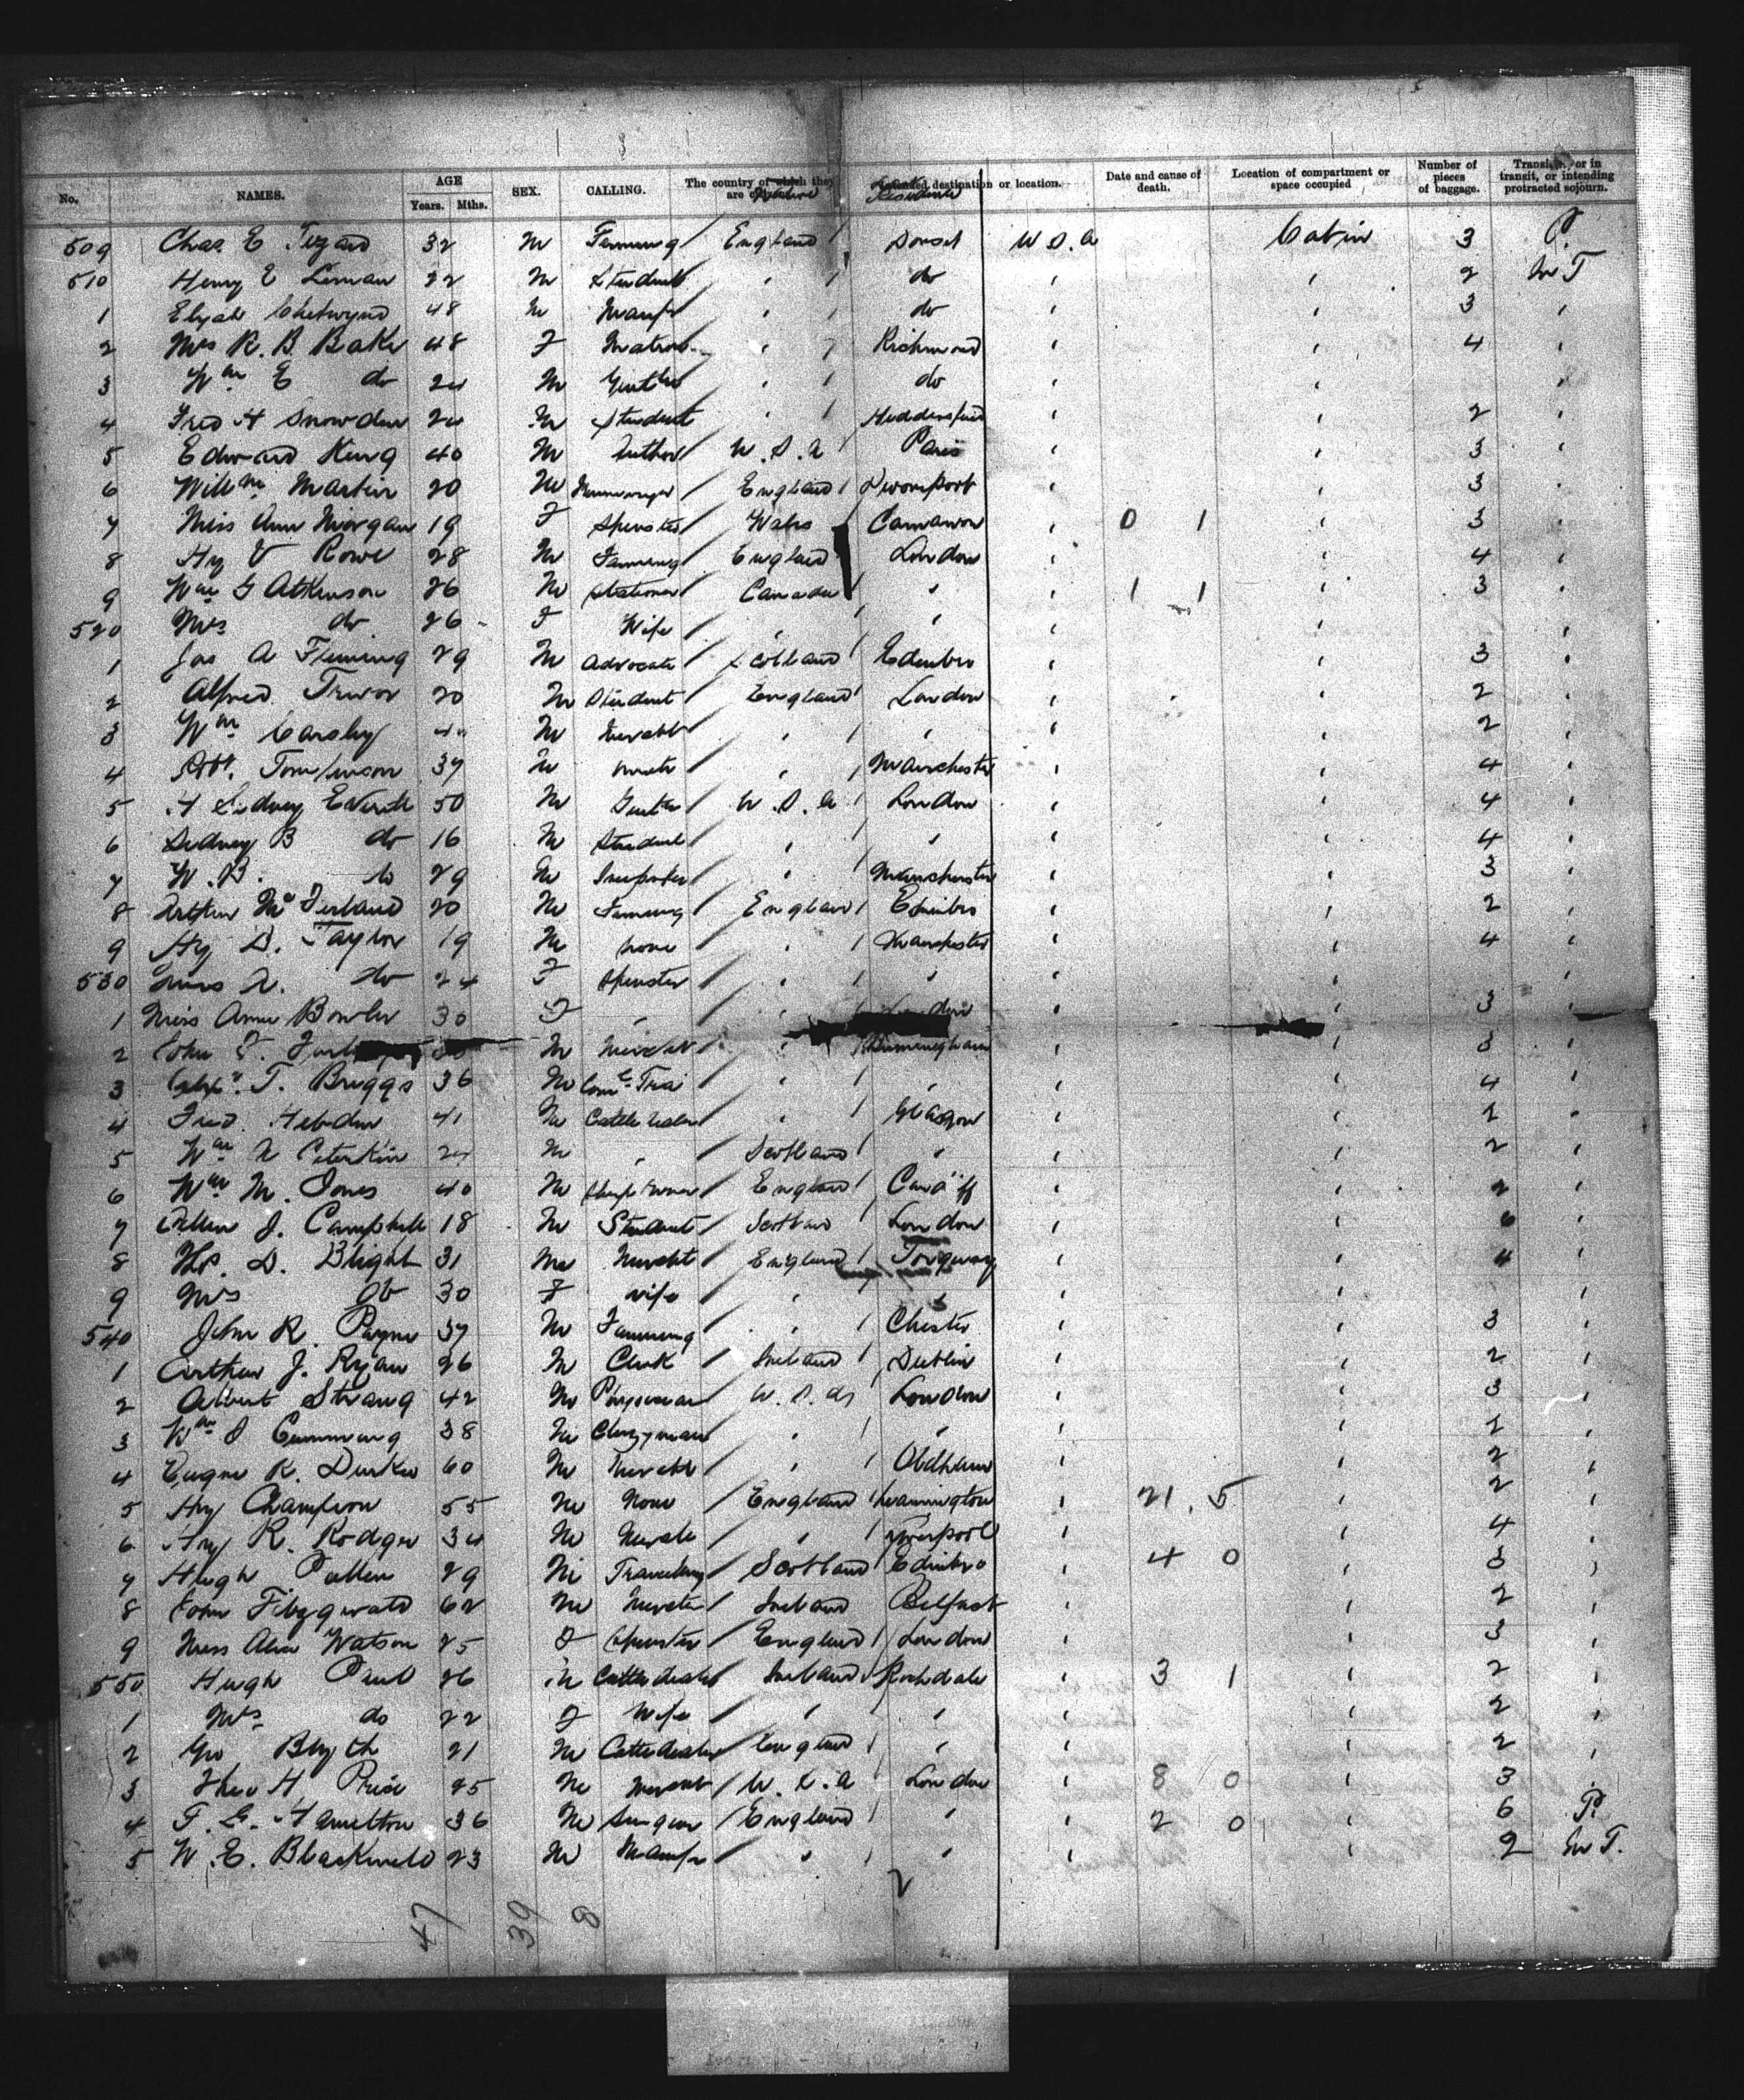 No. NAMES. AGE Years. Mths. SEX. CALLING. The country of which they are citizens Native Intended destination or location. Residence Date and cause of death. Location of compartment or space occupied Number of pieces of baggage. Transient, or in transit, or intending protracted sojourn.
509 Chas. E 32 M Farming England Dorset U S A Cabin 3 P.
510 Henry E Leman 22 M Student " do " " 2 In T
1 Elijah Chetwynd 48 M Manfr " do " " 3 "
2 Mrs R. B. Baker 48 F Matron " Richmond " " 4 "
3 Wm E do 24 M Gentln " do " " "
4 Fred H Snowden 24 M Student " Huddersfield " " 2 "
5 Edward King 40 M Author U.S.A Paris " " 3 "
6 Willm Martin 20 M England Devonport " " 3 "
7 Miss Ann Morgan 19 F Spinster Wales Carnarvon " 0 1 " 3 "
8 Hy V Rowe 28 M Farming England London " " 4 "
9 Wm G Atkinson 26 M Stationer Canada " " 1 1 " 3 "
520 Mrs do 26 F Wife " " " " "
1 Jas A Fleming 29 M Advocate Scotland Edinbro " " 3 "
2 Alfred Trevor 20 M Student England London " " 2 "
3 Wm Carsley M Mercht " " " " 2 "
4 Robt. Tomlinson 37 M Mercht " Manchester " " 4 "
5 H Sidney Everett 50 M Gentn U.S.A London " " 4 "
6 Sidney B do 16 M Student " " " " 4 "
7 W. B. do 29 M Importer " Manchester " " 3 "
8 Arthur McFerland 20 M Farming England Edinbro " " 2 "
9 Hy D. Taylor 19 M None " Manchester " " 4 "
530 Miss A. do 24 F Spinster " " " " "
1 Miss Annie Bowler 30 F " " London " " 3 "
2 John F. M Mercht " Birmingham " " 3 "
3 T. Briggs 36 M Coml Trav " " " " 4 "
4 Fred. Hebden 41 M Cattle dealer " Glasgow " " 2 "
5 Wm A Peterkin 24 M " Scotland " " " 2 "
6 Wm M. Jones 40 M England Cardiff " " 2 "
7 Allen J. Campbell 18 M Student Scotland London " " 6 "
8 Thos. D. Blight 31 M Mercht England Torquay " " 4 "
9 Mrs do 30 F wife " " " " "
540 John R. Payne 37 M Farming " Chester " " 3 "
1 Arthur J. Ryan 26 M Clerk Ireland Dublin " " 2 "
2 Albert Strang 42 M Physician U.S.A London " " 3 "
3 Wm J Cumming 38 M Clergyman " " " " 2 "
4 Eugene R. Durkee 60 M Mercht " Oldham " " 2 "
5 Hy Champion 55 M None England Leamington " 21.5 " 2 "
6 Hy R. Rodger 34 M Mercht " Liverpool " " 4 "
7 Hugh Patten 29 M Travelling Scotland Edinbro " 4 0 " 3 "
8 John Fitzgerald 62 M Mercht Ireland Belfast " " 2 "
9 Miss Alice Watson 25 F Spinster England London " " 3 "
550 Hugh Paul 26 M Cattle dealer Ireland Rochdale " 3 1 " 2 "
1 Mrs do 22 F Wife " " " " 2 "
2 Geo Blyth 21 M Cattle dealer England " " " 2 "
3 Theo H Price 25 M Mercht U.S.A London " 8 0 " 3 "
4 F. G. Hamilton 36 M Surgeon England " " 2 0 " 6 P.
5 W. E. Blackwell 23 M Manfr " " " " 2 In T.
47 39 8 2